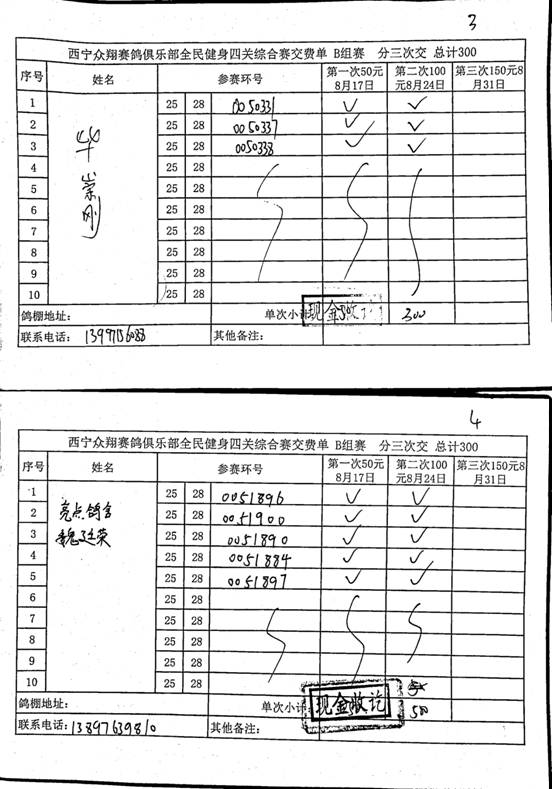 3
西宁众翔赛鸽俱乐部全民健身四关综合赛交费单 B组赛 分三次交 总计300
序号 姓名 参赛环号 第一次50元8月17日 第二次100元8月24日 第三次150元8月31日
1 25 28 0050331 ✓ ✓
2 25 28 0050337 ✓ ✓
3 华崇刚 25 28 0050338 ✓ ✓
4 25 28
5 25 28
6 25 28
7 25 28
8 25 28
9 25 28
10 25 28
鸽棚地址: 单次小计 现金收讫 300
联系电话: 其他备注:
4
西宁众翔赛鸽俱乐部全民健身四关综合赛交费单 B组赛 分三次交 总计300
序号 姓名 参赛环号 第一次50元8月17日 第二次100元8月24日 第三次150元8月31日
1 25 28 0051896 ✓ ✓
2 亮点鸽舍 25 28 0051900 ✓ ✓
3 魏廷荣 25 28 0051890 ✓ ✓
4 25 28 0051884 ✓ ✓
5 25 28 0051897 ✓ ✓
6 25 28
7 25 28
8 25 28
9 25 28
10 25 28
鸽棚地址: 单次小计: 现金收讫 500
联系电话: 13897639810 其他备注: